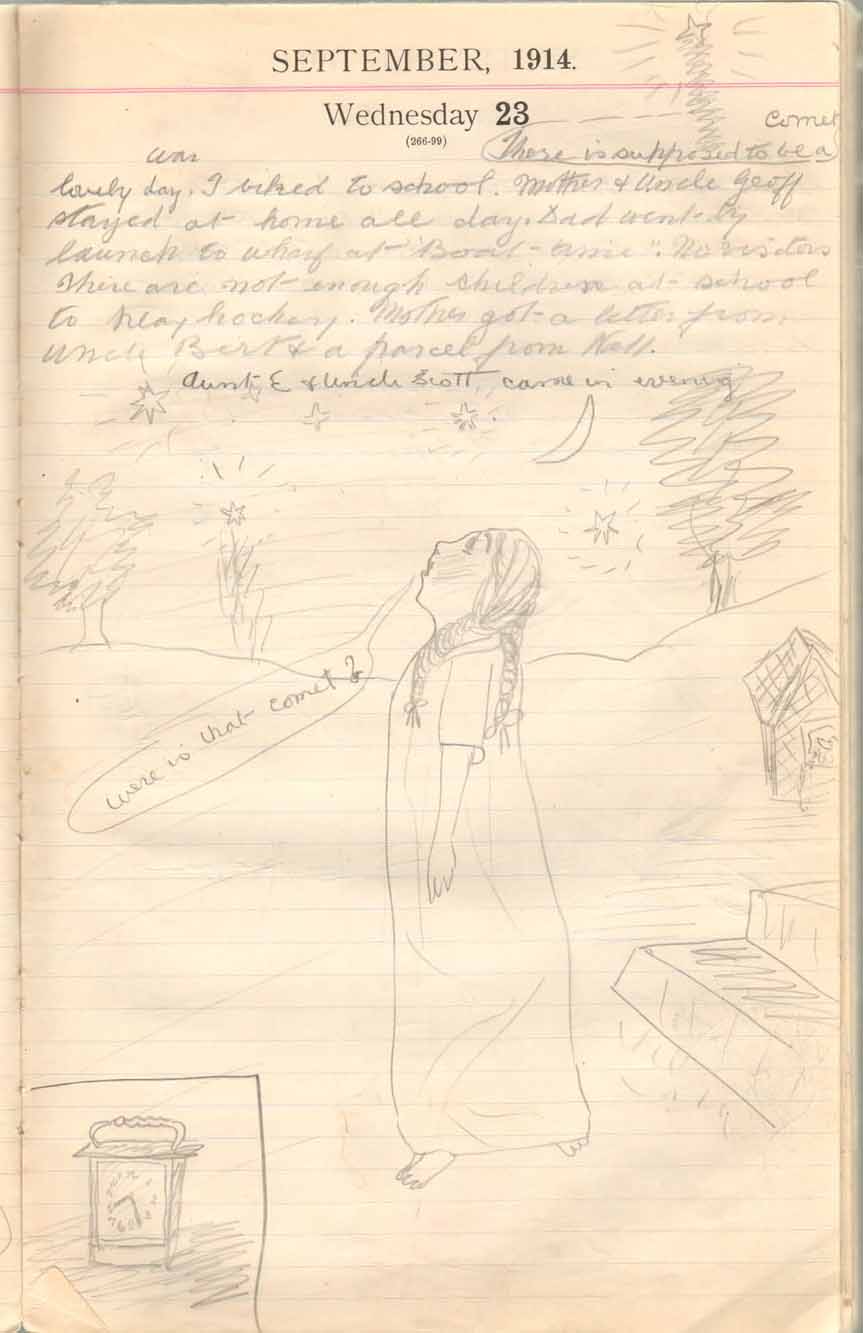 SEPTEMBER, 1914.
Wednesday 23
(266-99)
Comet
war
There is supposed to be a
lovely day. I biked to school. Mother & Uncle Geoff
stayed at home all day. Dad went by
launch to wharf at "Boat-time". No visitors
There are not enough children at school
to play hockey. Mother got a letter from
Uncle Bert & a parcel from Nell.
Aunt E & Uncle Scott, came in evening
were is that comet?